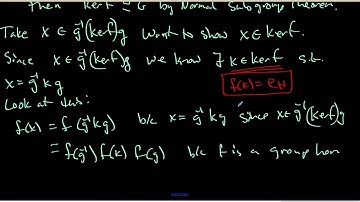 then Kerf ⊴ G by Normal Subgroup Theorem.
Take x ∈ g⁻¹(kerf)g want to show x ∈ kerf.
Since x ∈ g⁻¹(kerf)g we know ∃ k ∈ kerf s.t.
x = g⁻¹ k g
f(k) = e_H
Look at this:
f(x) = f(g⁻¹kg) b/c x = g⁻¹kg since x ∈ g⁻¹(kerf)g
= f(g⁻¹) f(k) f(g) b/c f is a group hom